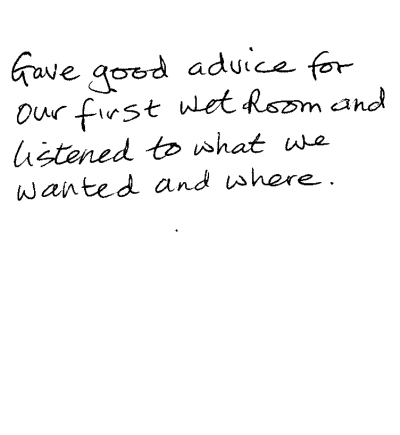 Gave good advice for
our first Wet Room and
listened to what we
wanted and where.